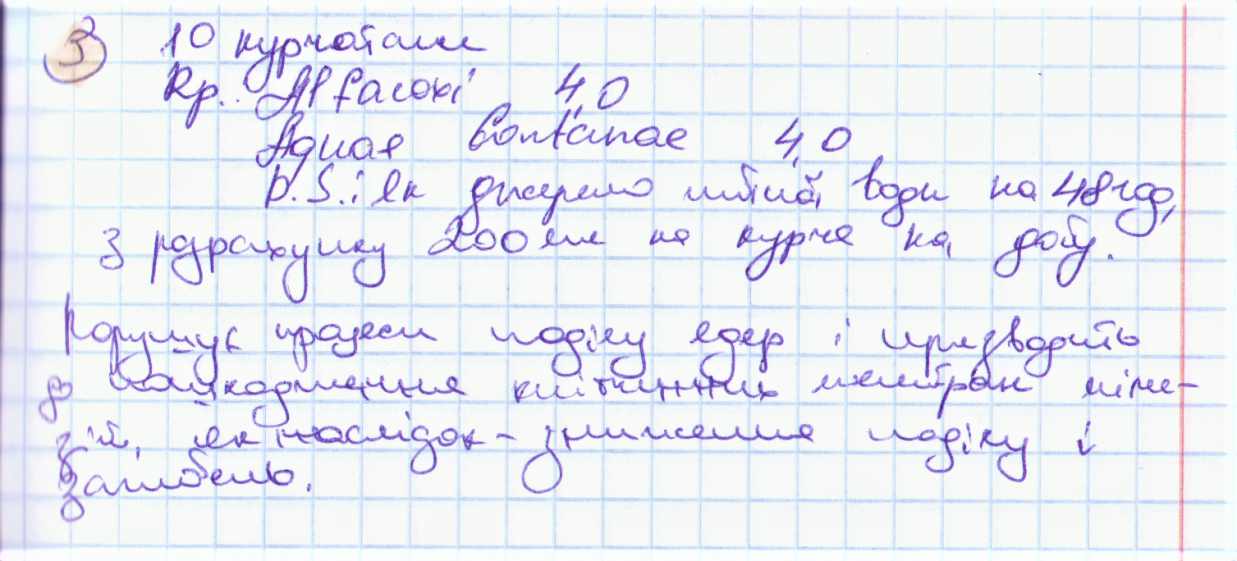 3 10 курчатам
Rp.: Alfacoxi 4,0
Aquae fontanae 4,0
D.S.: Як джерело питної води на 48 год,
з розрахунку 200 мл на курча на добу.
Порушує процеси поділу ядер і призводить
до пошкодження клітинних мембран меро-
зоїтів, як наслідок - зниження поділу і
загибель.